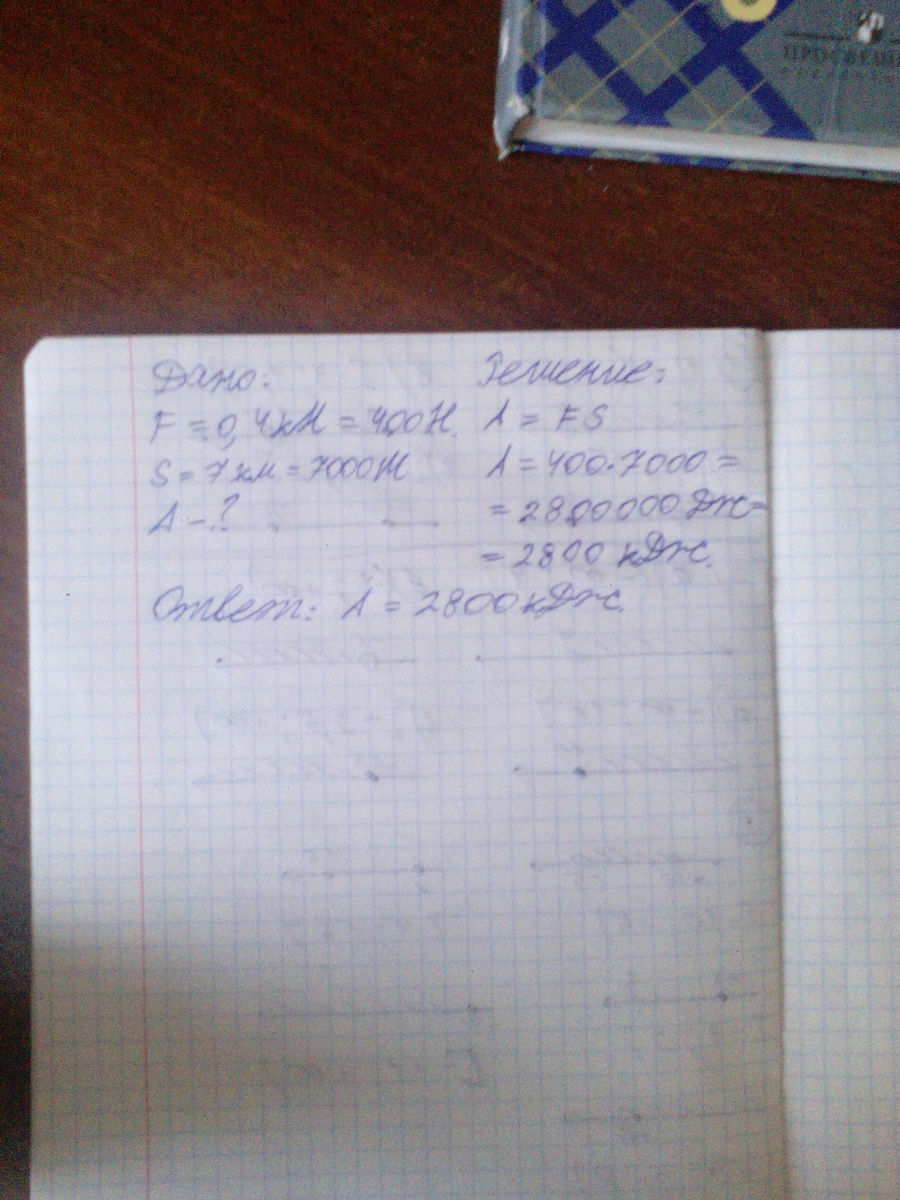 ПРОСВЕЩЕ
Дано:
F = 0,4кМ = 400Н.
S = 7 км = 7000М
A - ?
Решение:
A = FS
A = 400·7000 =
= 2800000 Дж=
= 2800 кДж.
Ответ: A = 2800кДж.